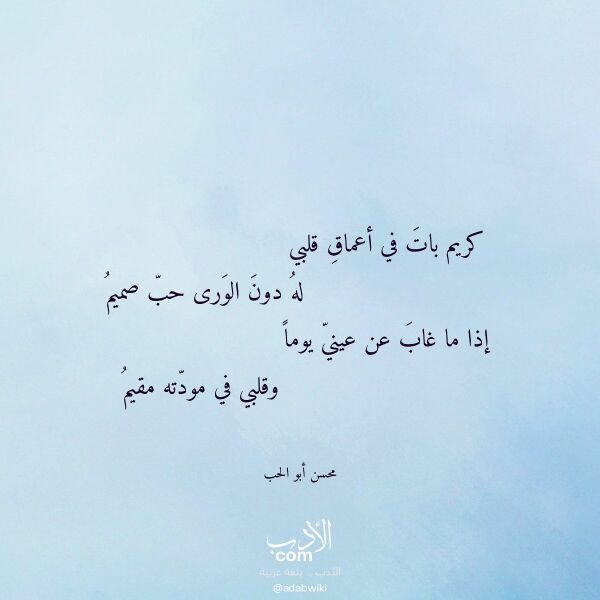 كريم باتَ في أعماقِ قلبي
لهُ دونَ الوَرى حبّ صميمُ
إذا ما غابَ عن عينيّ يوماً
وقلبي في مودّته مقيمُ
محسن أبو الحب
الأدب
com
الأدب .. بلغة عربية
@adabwiki